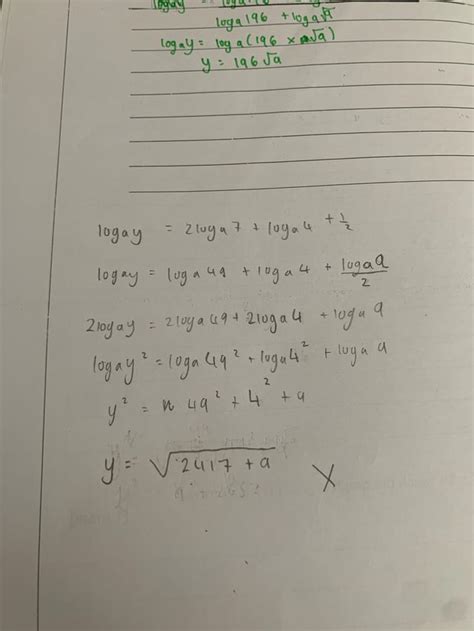 logay = loga
loga 196 + loga√a
logay = loga(196 × √a)
y = 196√a
logay = 2loga7 + loga4 + 1/2
logay = loga49 + loga4 + logaa/2
2logay = 2loga49 + 2loga4 + logaa
logay² = loga49² + loga4² + logaa
y² = 49² + 4² + a
y = √2417 + a X